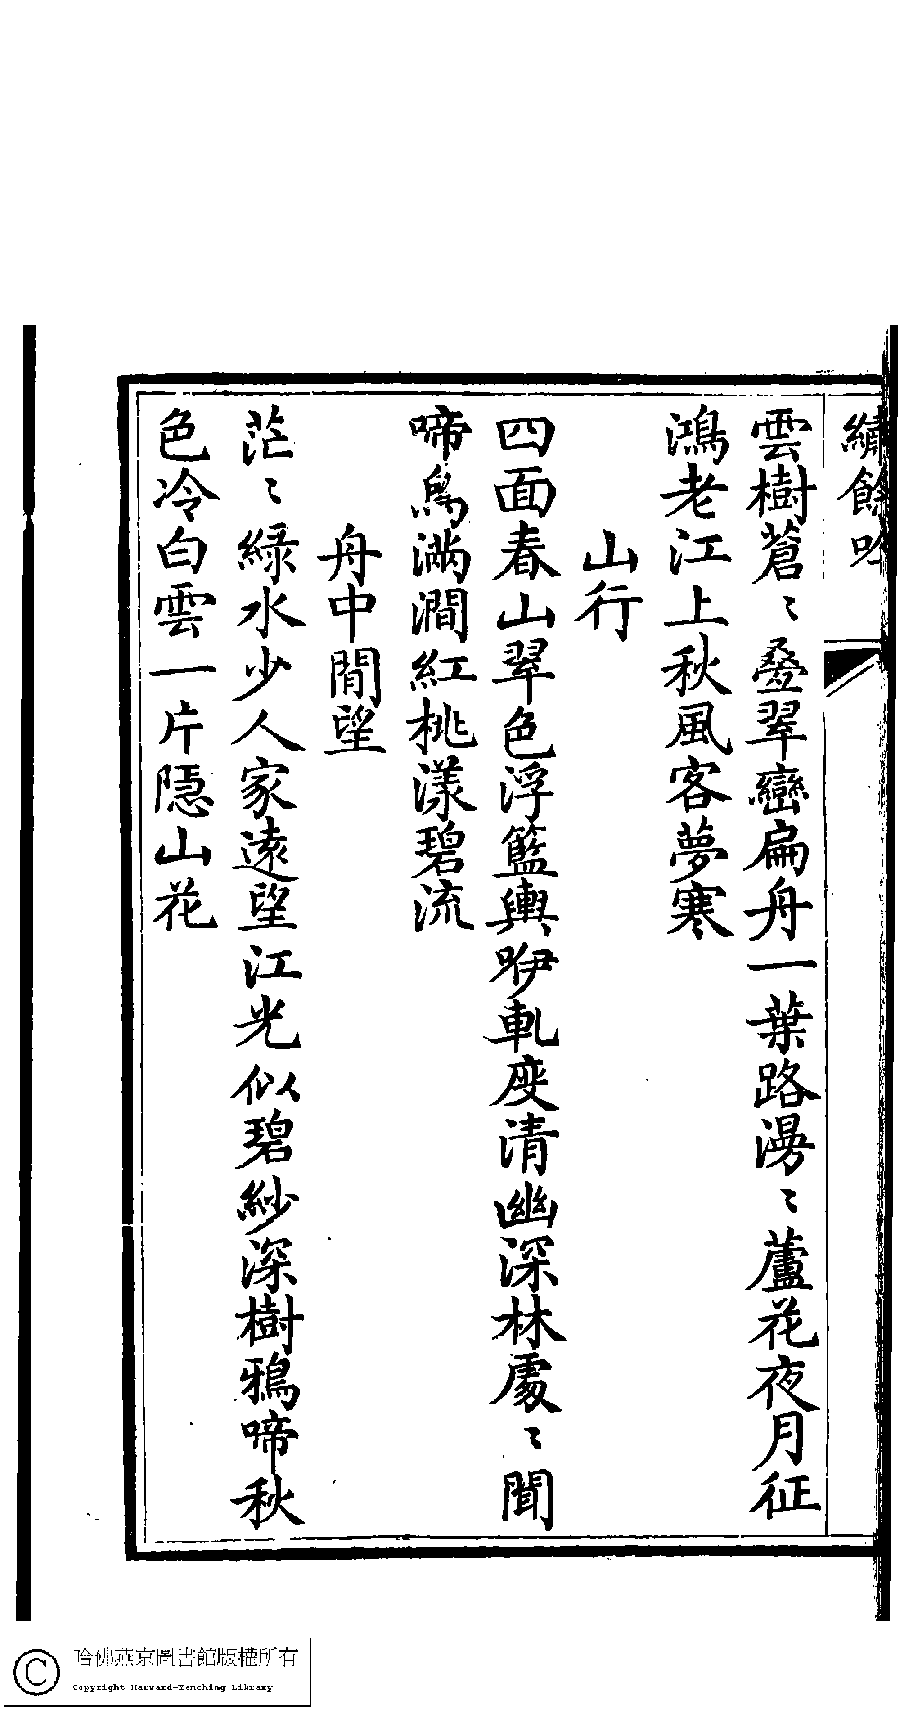 繡餘吟
雲樹蒼〻疊翠巒扁舟一葉路漫〻蘆花夜月征
鴻老江上秋風客夢寒
山行
四面春山翠色浮籃輿咿軋度清幽深林處〻聞
啼鳥滿澗紅桃漾碧流
舟中閒望
茫〻綠水少人家遠望江光似碧紗深樹鴉啼秋
色冷白雲一片隱山花
哈佛燕京圖書館版權所有
Copyright Harvard-Yenching Library